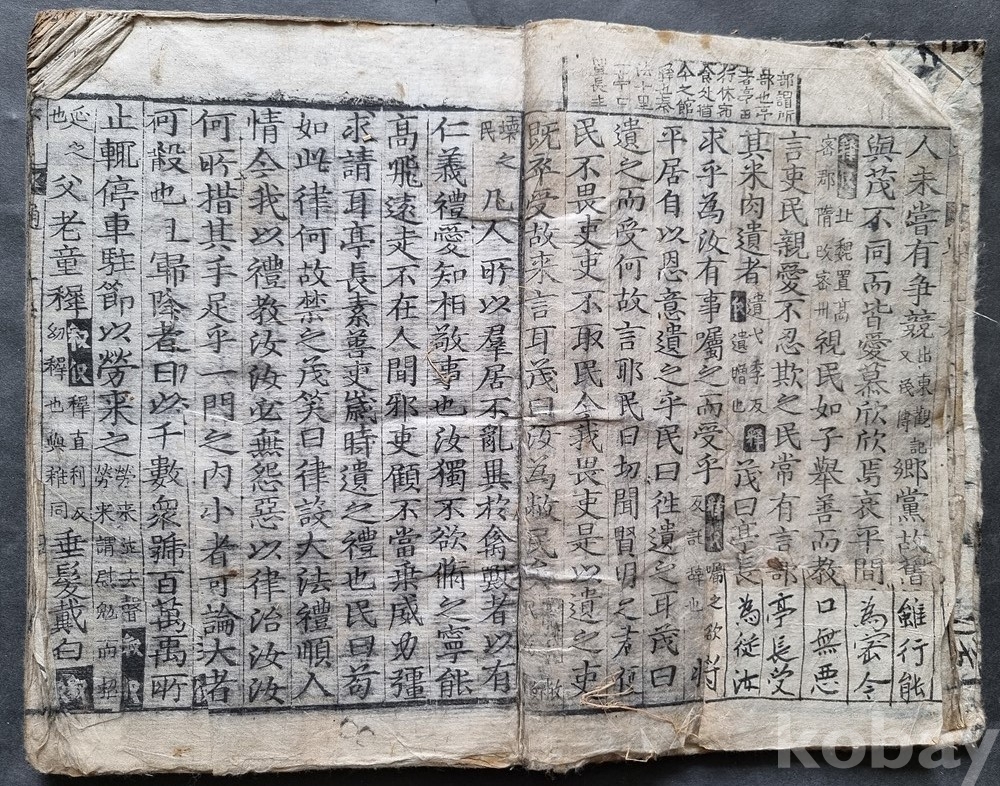 部謂所
部也亭
行休宿
食处道
今之館
人未嘗有爭競出東觀記又後傳鄉黨故舊雖行能
與茂不同而皆愛慕欣欣焉哀平間為密令
北魏置高密郡隋改密州視民如子舉善而教口無惡
言吏民親愛不忍欺之民常有言部亭長受
其米肉遺者遺弋季反遺贈也釋茂曰亭長為從汝
求乎為汝有事囑之而受乎囑之欲反託辭也將
平居自以恩意遺之乎民曰往遺之耳茂曰
遺之而受何故言耶民曰切聞賢明之君使
民不畏吏吏不取民今我畏吏是以遺之吏
既卒受故来言耳茂曰汝為敝民矣
壞之民凡人所以羣居不亂異於禽獸者以有
仁義禮愛知相敬事也汝獨不欲脩之寧能
高飛遠走不在人間邪吏顧不當乘威力彊
求請耳亭長素善吏歲時遺之禮也民曰苟
如此律何故禁之茂笑曰律設大法禮順人
情今我以禮教汝汝必無怨惡以律治汝汝
何所措其手足乎一門之内小者可論大者
可殺也軍降者日以千數衆號百萬禹所
止輒停車駐節以勞来之勞来並去聲勞来謂慰勉而招
延之也父老童穉釋穉直利反幼穉也與稚同垂髮戴白
kobay